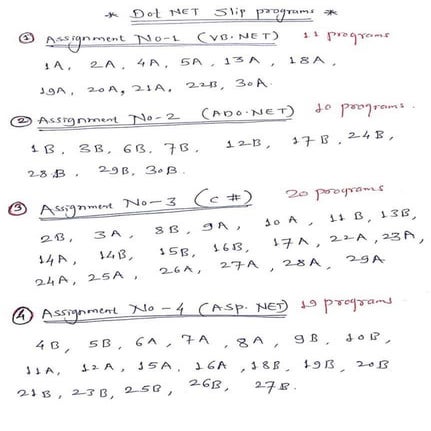 * Dot NET Slip programs *
① Assignment No-1 (VB.NET) 11 programs
1A, 2A, 4A, 5A, 13A, 18A,
19A, 20A, 21A, 22B, 30A.
② Assignment No-2 (ADO.NET) 10 programs.
1B, 3B, 6B, 7B, 12B, 17B, 24B,
28B, 29B, 30B.
③ Assignment No-3 (C#) 20 programs
2B, 3A, 8B, 9A, 10A, 11B, 13B,
14A, 14B, 15B, 16B, 17A, 22A, 23A,
24A, 25A, 26A, 27A, 28A, 29A
④ Assignment No-4 (ASP.NET) 19 programs
4B, 5B, 6A, 7A, 8A, 9B, 10B,
11A, 12A, 15A, 16A, 18B, 19B, 20B
21B, 23B, 25B, 26B, 27B.